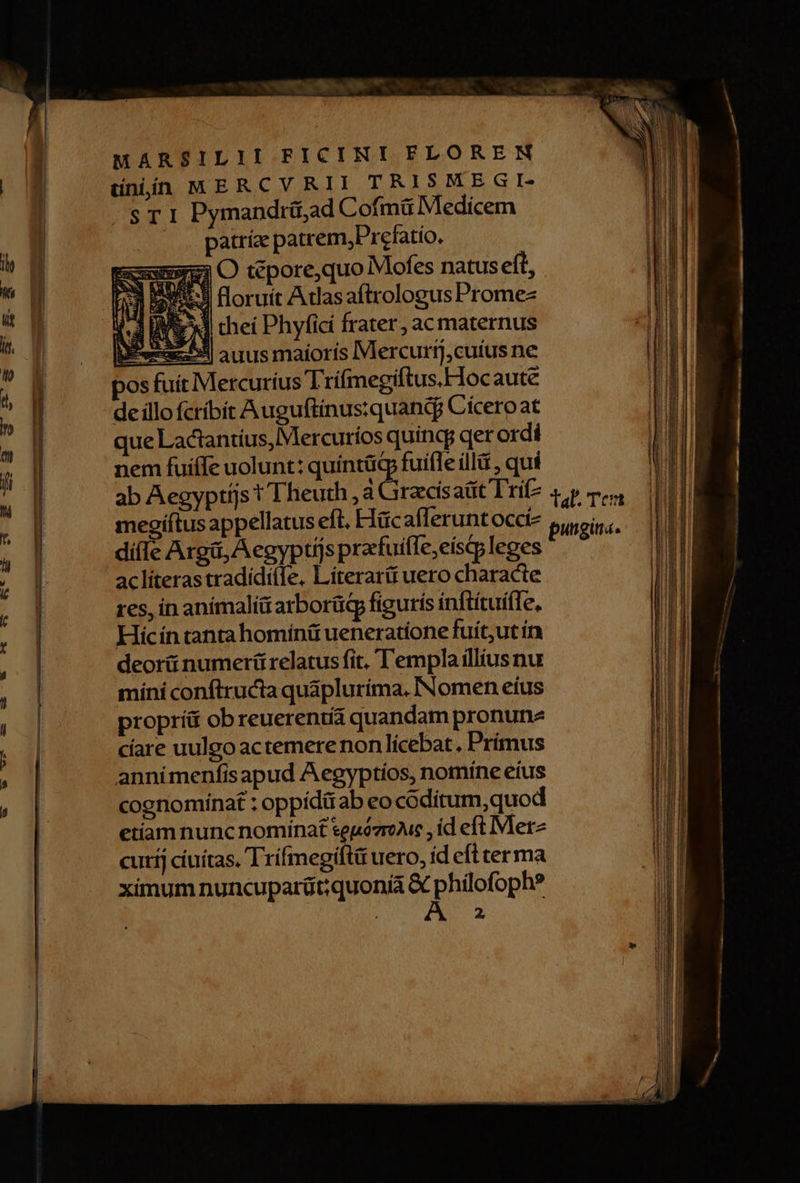 MARSILII FICINI FLOREN
tini,in MERCVRII TRISMEGI-
STI Pymandrū,ad Cosmū Medicem
patriæ patrem,Pręfatio.
O tēpore,quo Moſes natus eſt,
floruit Atlas aſtrologus Prome-
thei Phyſici frater, ac maternus
auus maioris Mercurij,cuius ne
pos fuit Mercurius Triſmegiſtus.Hoc autē
de illo ſcribit Auguſtinus:quanq̃ Cicero at
que Lactantius,Mercurios quinq̃ ꝑ ordi
nem fuiſſe uolunt: quintūq̃ fuiſſe illū, qui
ab Aegyptijs † Theuth, à Græcis aūt Triſ-
megiſtus appellatus eſt. Hūc aſſerunt occi-
diſſe Argū, Aegyptijs præfuiſſe,eisq̃ leges
ac literas tradidiſſe. Literarū uero characte
res, in animaliū arborūq̃ figuris inſtituiſſe.
Hic in tanta hominū ueneratione fuit,ut in
deorū numerū relatus ſit. Templa illius nu
mini conſtructa quāplurima. Nomen eius
propriū ob reuerentiā quandam pronun-
ciare uulgo ac temere non licebat. Primus
anni menſis apud Aegyptios, nomine eius
cognominat̃ : oppidū ab eo cōditum,quod
etiam nunc nominat̃ ἑρμόπολις, id eſt Mer-
curij ciuitas. Triſmegiſtū uero, id eſt ter ma
ximum nuncuparūt;quoniā & philoſophꝰ
A 2
†al. Tem
pungina.